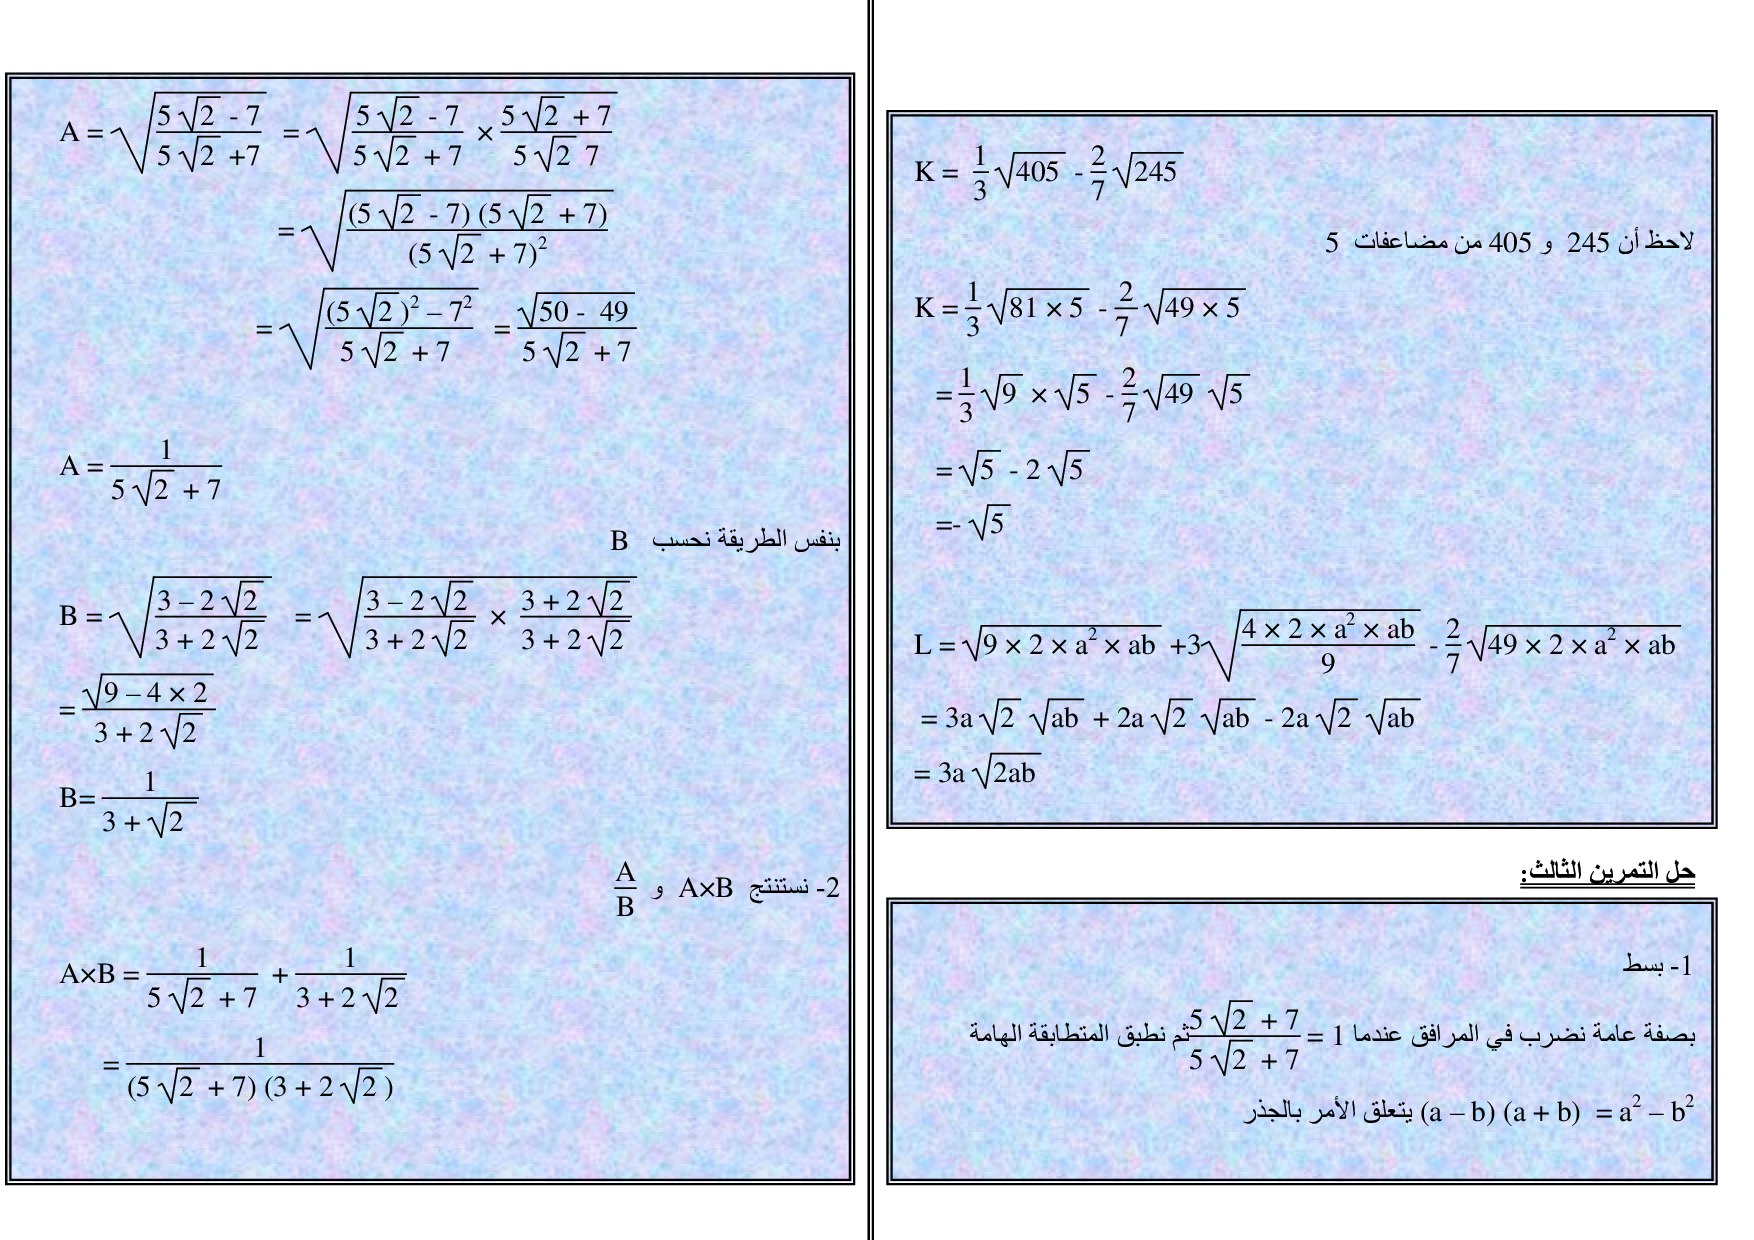 K = 1/3 √405 - 2/7 √245
لاحظ أن 245 و 405 من مضاعفات 5
K = 1/3 √(81 × 5) - 2/7 √(49 × 5)
= 1/3 √9 × √5 - 2/7 √49 √5
= √5 - 2 √5
=- √5
L = √(9 × 2 × a² × ab) +3√((4 × 2 × a² × ab)/9) - 2/7 √(49 × 2 × a² × ab)
= 3a √2 √ab + 2a √2 √ab - 2a √2 √ab
= 3a √(2ab)
حل التمرين الثالث:
1- بسط
بصفة عامة نضرب في المرافق عندما 1 = (5 √2 + 7)/(5 √2 + 7) ثم نطبق المتطابقة الهامة
(a – b) (a + b) = a² – b² يتعلق الأمر بالجذر
A = √((5 √2 - 7)/(5 √2 +7)) = √((5 √2 - 7)/(5 √2 + 7) × (5 √2 + 7)/(5 √2 7))
= √(((5 √2 - 7) (5 √2 + 7))/(5 √2 + 7)²)
= √(((5 √2 )² – 7²)/(5 √2 + 7)) = √(50 - 49)/(5 √2 + 7)
A = 1/(5 √2 + 7)
بنفس الطريقة نحسب B
B = √((3 – 2 √2)/(3 + 2 √2)) = √((3 – 2 √2)/(3 + 2 √2) × (3 + 2 √2)/(3 + 2 √2))
= √(9 – 4 × 2)/(3 + 2 √2)
B= 1/(3 + √2)
2- نستنتج A×B و A/B
A×B = 1/(5 √2 + 7) + 1/(3 + 2 √2)
= 1/((5 √2 + 7) (3 + 2 √2 ))